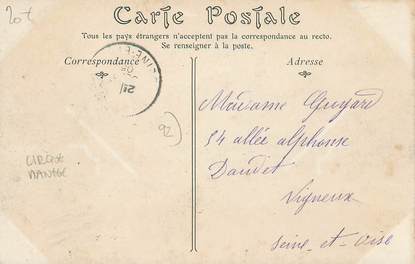 20f
Carte Postale
Tous les pays étrangers n'acceptent pas la correspondance au recto.
Se renseigner à la poste.
Correspondance
Adresse
SEINE-ET
21
92)
Madame Guyard
54 allée alphonse
Daudet
Vigneux
Seine-et-Oise
CIRQUE
MANEGE